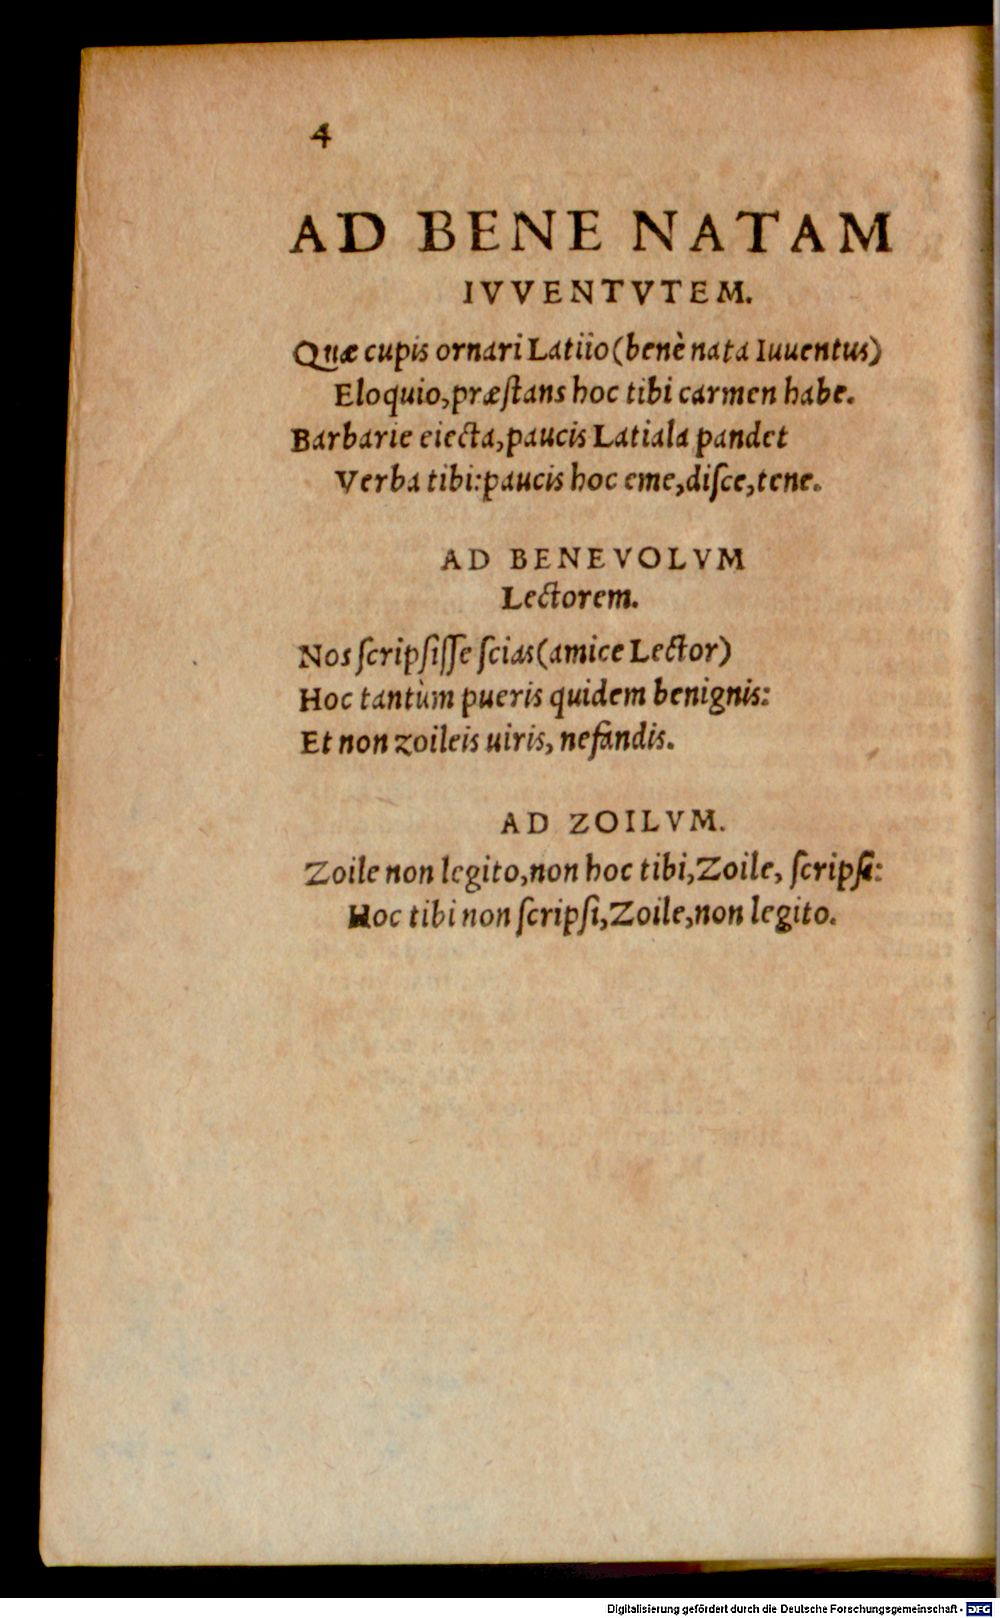 4
AD BENE NATAM
IVVENTVTEM.
Quæ cupis ornari Latiio (benè nata Iuuentus)
Eloquio, præſtans hoc tibi carmen habe.
Barbarie eiecta, paucis Latiala pandet
Verba tibi: paucis hoc eme, diſce, tene.
AD BENEVOLVM
Lectorem.
Nos ſcripſiſſe ſcias (amice Lector)
Hoc tantùm pueris quidem benignis:
Et non zoileis uiris, nefandis.
AD ZOILVM.
Zoile non legito, non hoc tibi, Zoile, ſcripſi:
Hoc tibi non ſcripſi, Zoile, non legito.
Digitalisierung gefördert durch die Deutsche Forschungsgemeinschaft - DFG